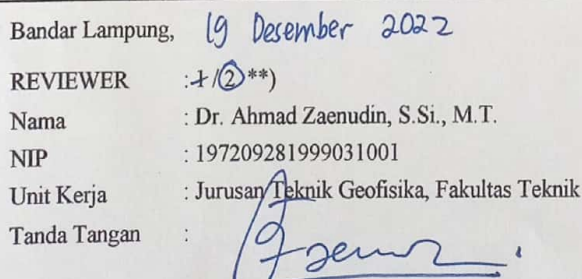 Bandar Lampung, 19 Desember 2022
REVIEWER : 1/2 **)
Nama : Dr. Ahmad Zaenudin, S.Si., M.T.
NIP : 197209281999031001
Unit Kerja : Jurusan Teknik Geofisika, Fakultas Teknik
Tanda Tangan :